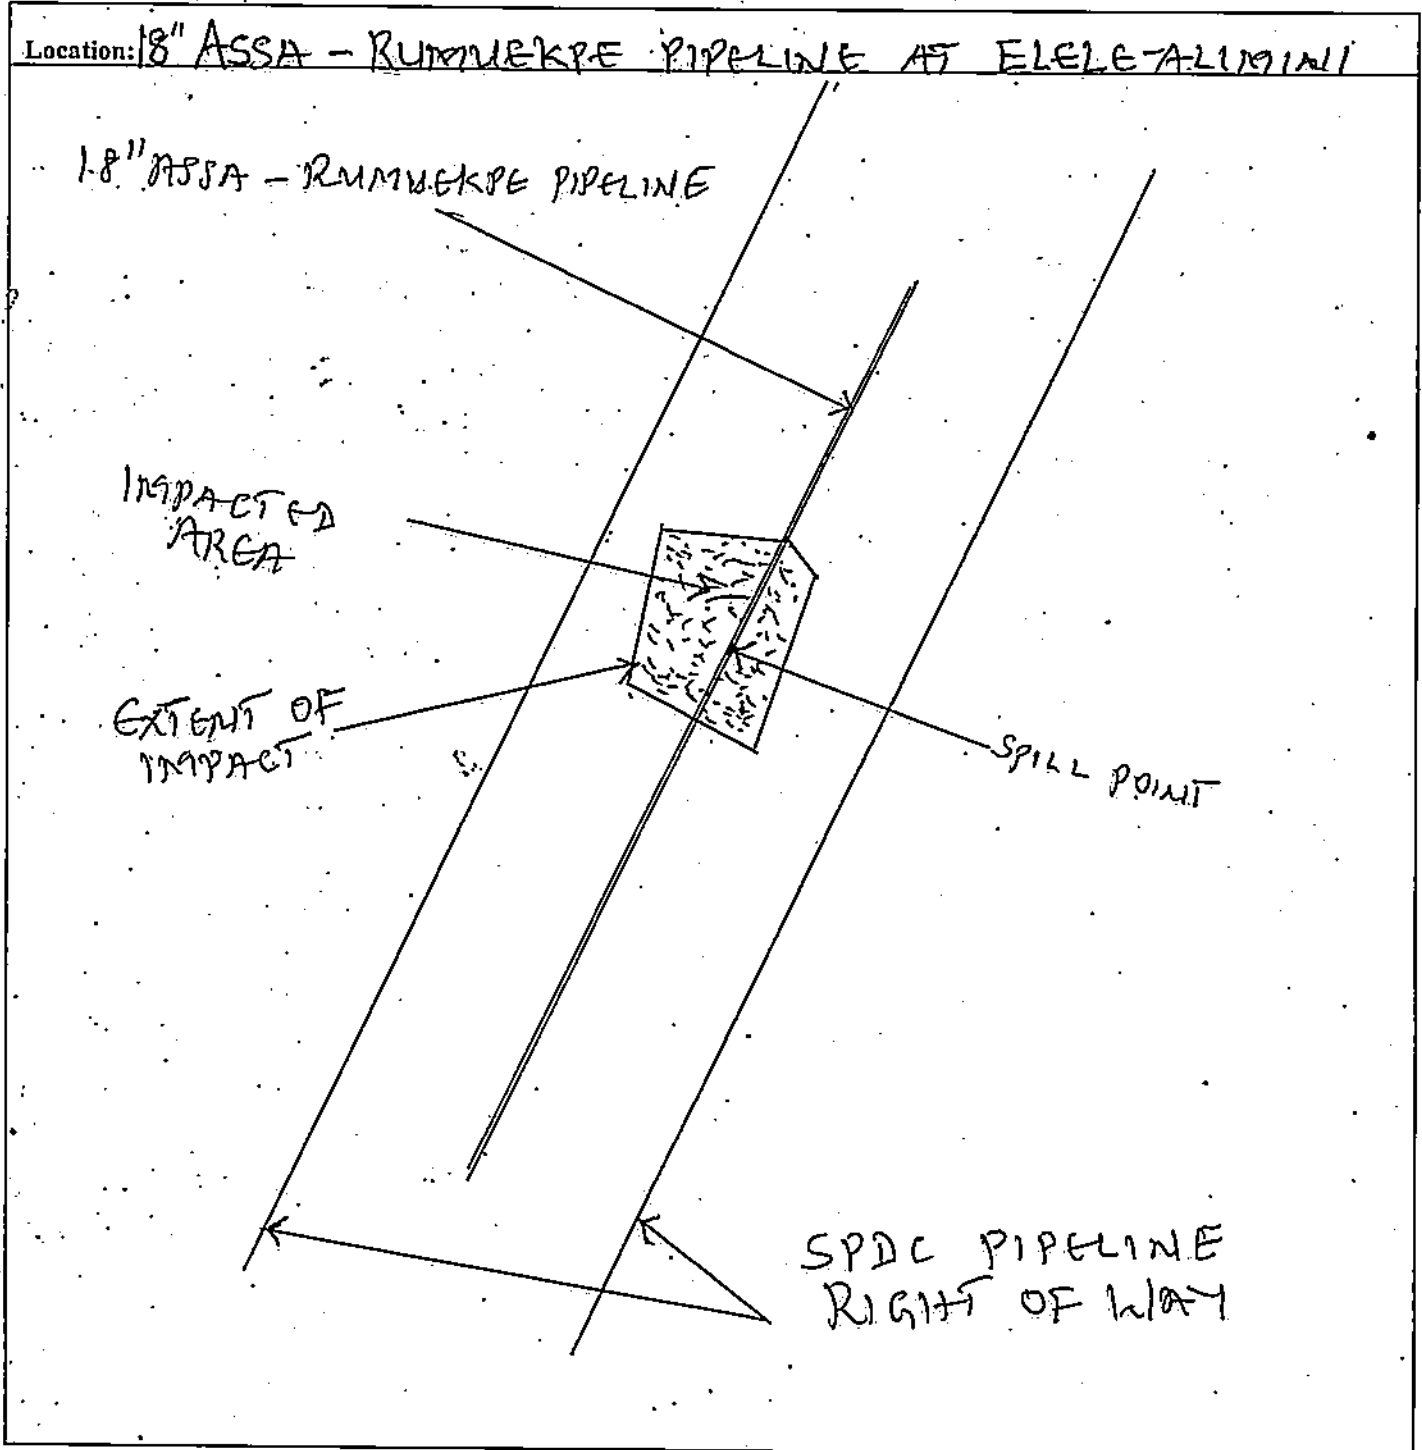 Location: 18" ASSA - RUMUEKPE PIPELINE AT ELELE-ALIMINI
18" ASSA - RUMUEKPE PIPELINE
IMPACTED
AREA
EXTENT OF
IMPACT
SPILL POINT
SPDC PIPELINE
RIGHT OF WAY